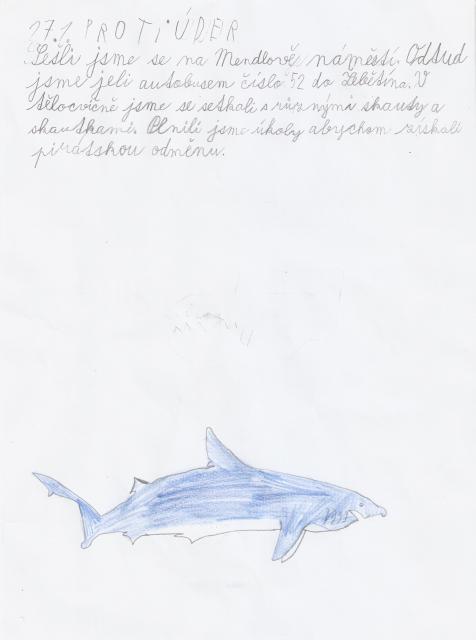 27.1. PROTIÚDER
Sešli jsme se na Mendlově náměstí. Odtud
jsme jeli autobusem číslo 52 do Žebětína. V
tělocvičně jsme se setkali s různýmá skauty a
skautkami. Plnili jsme úkoly abychom získali
pirátskou odměnu.